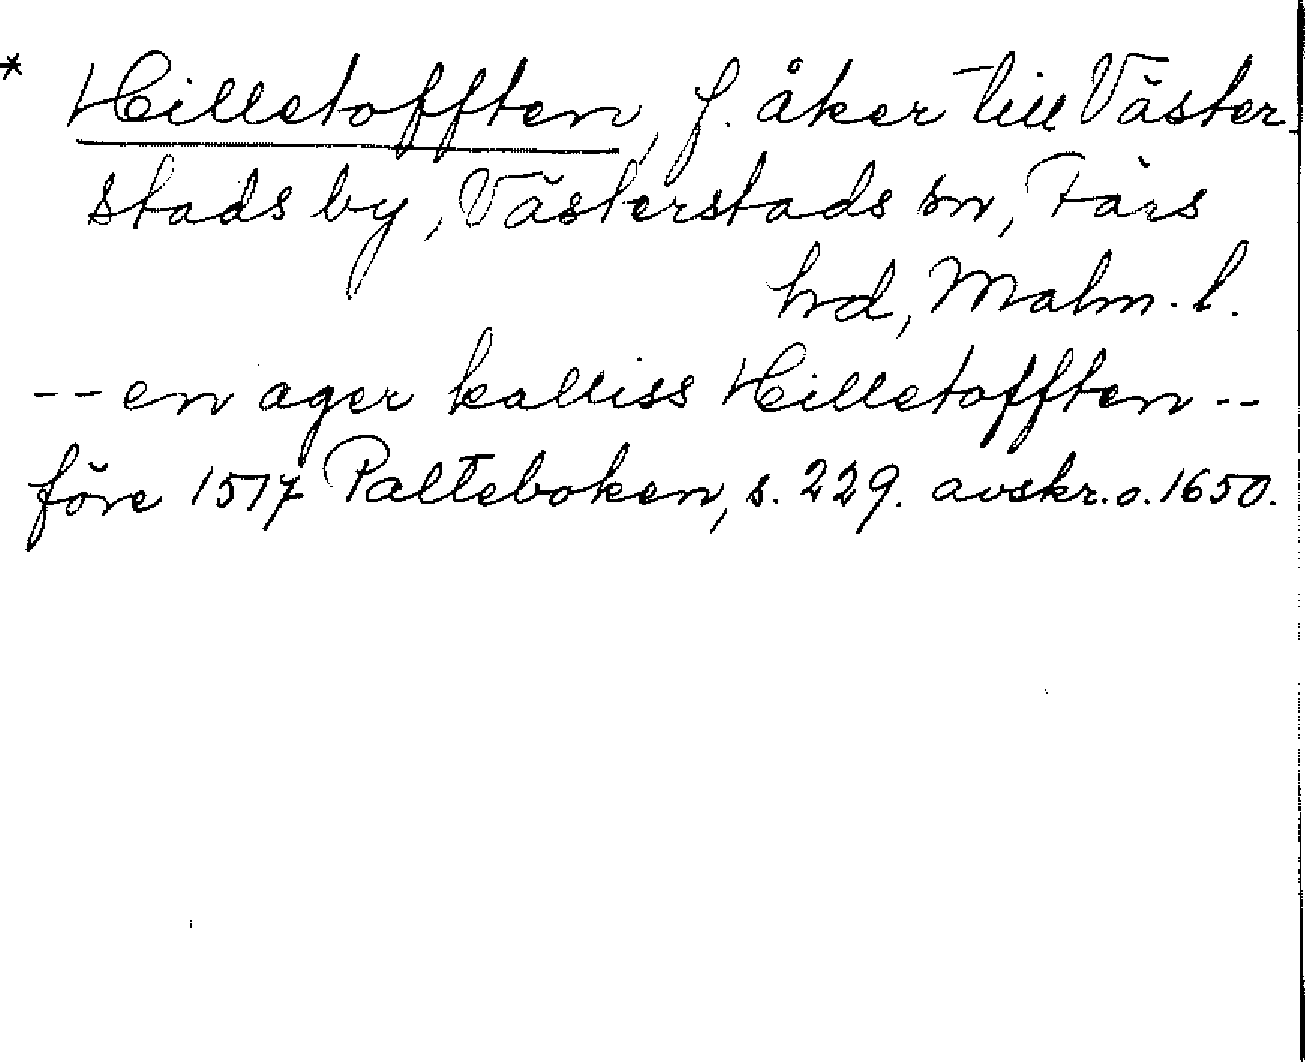 * Hilletofften, f. åker till Väster-
stads by, Västerstads sn, Färs
hd, Malm. l.
-- en ager kalliss Hilletofften --
före 1517 Palteboken, s. 229. avskr. o. 1650.